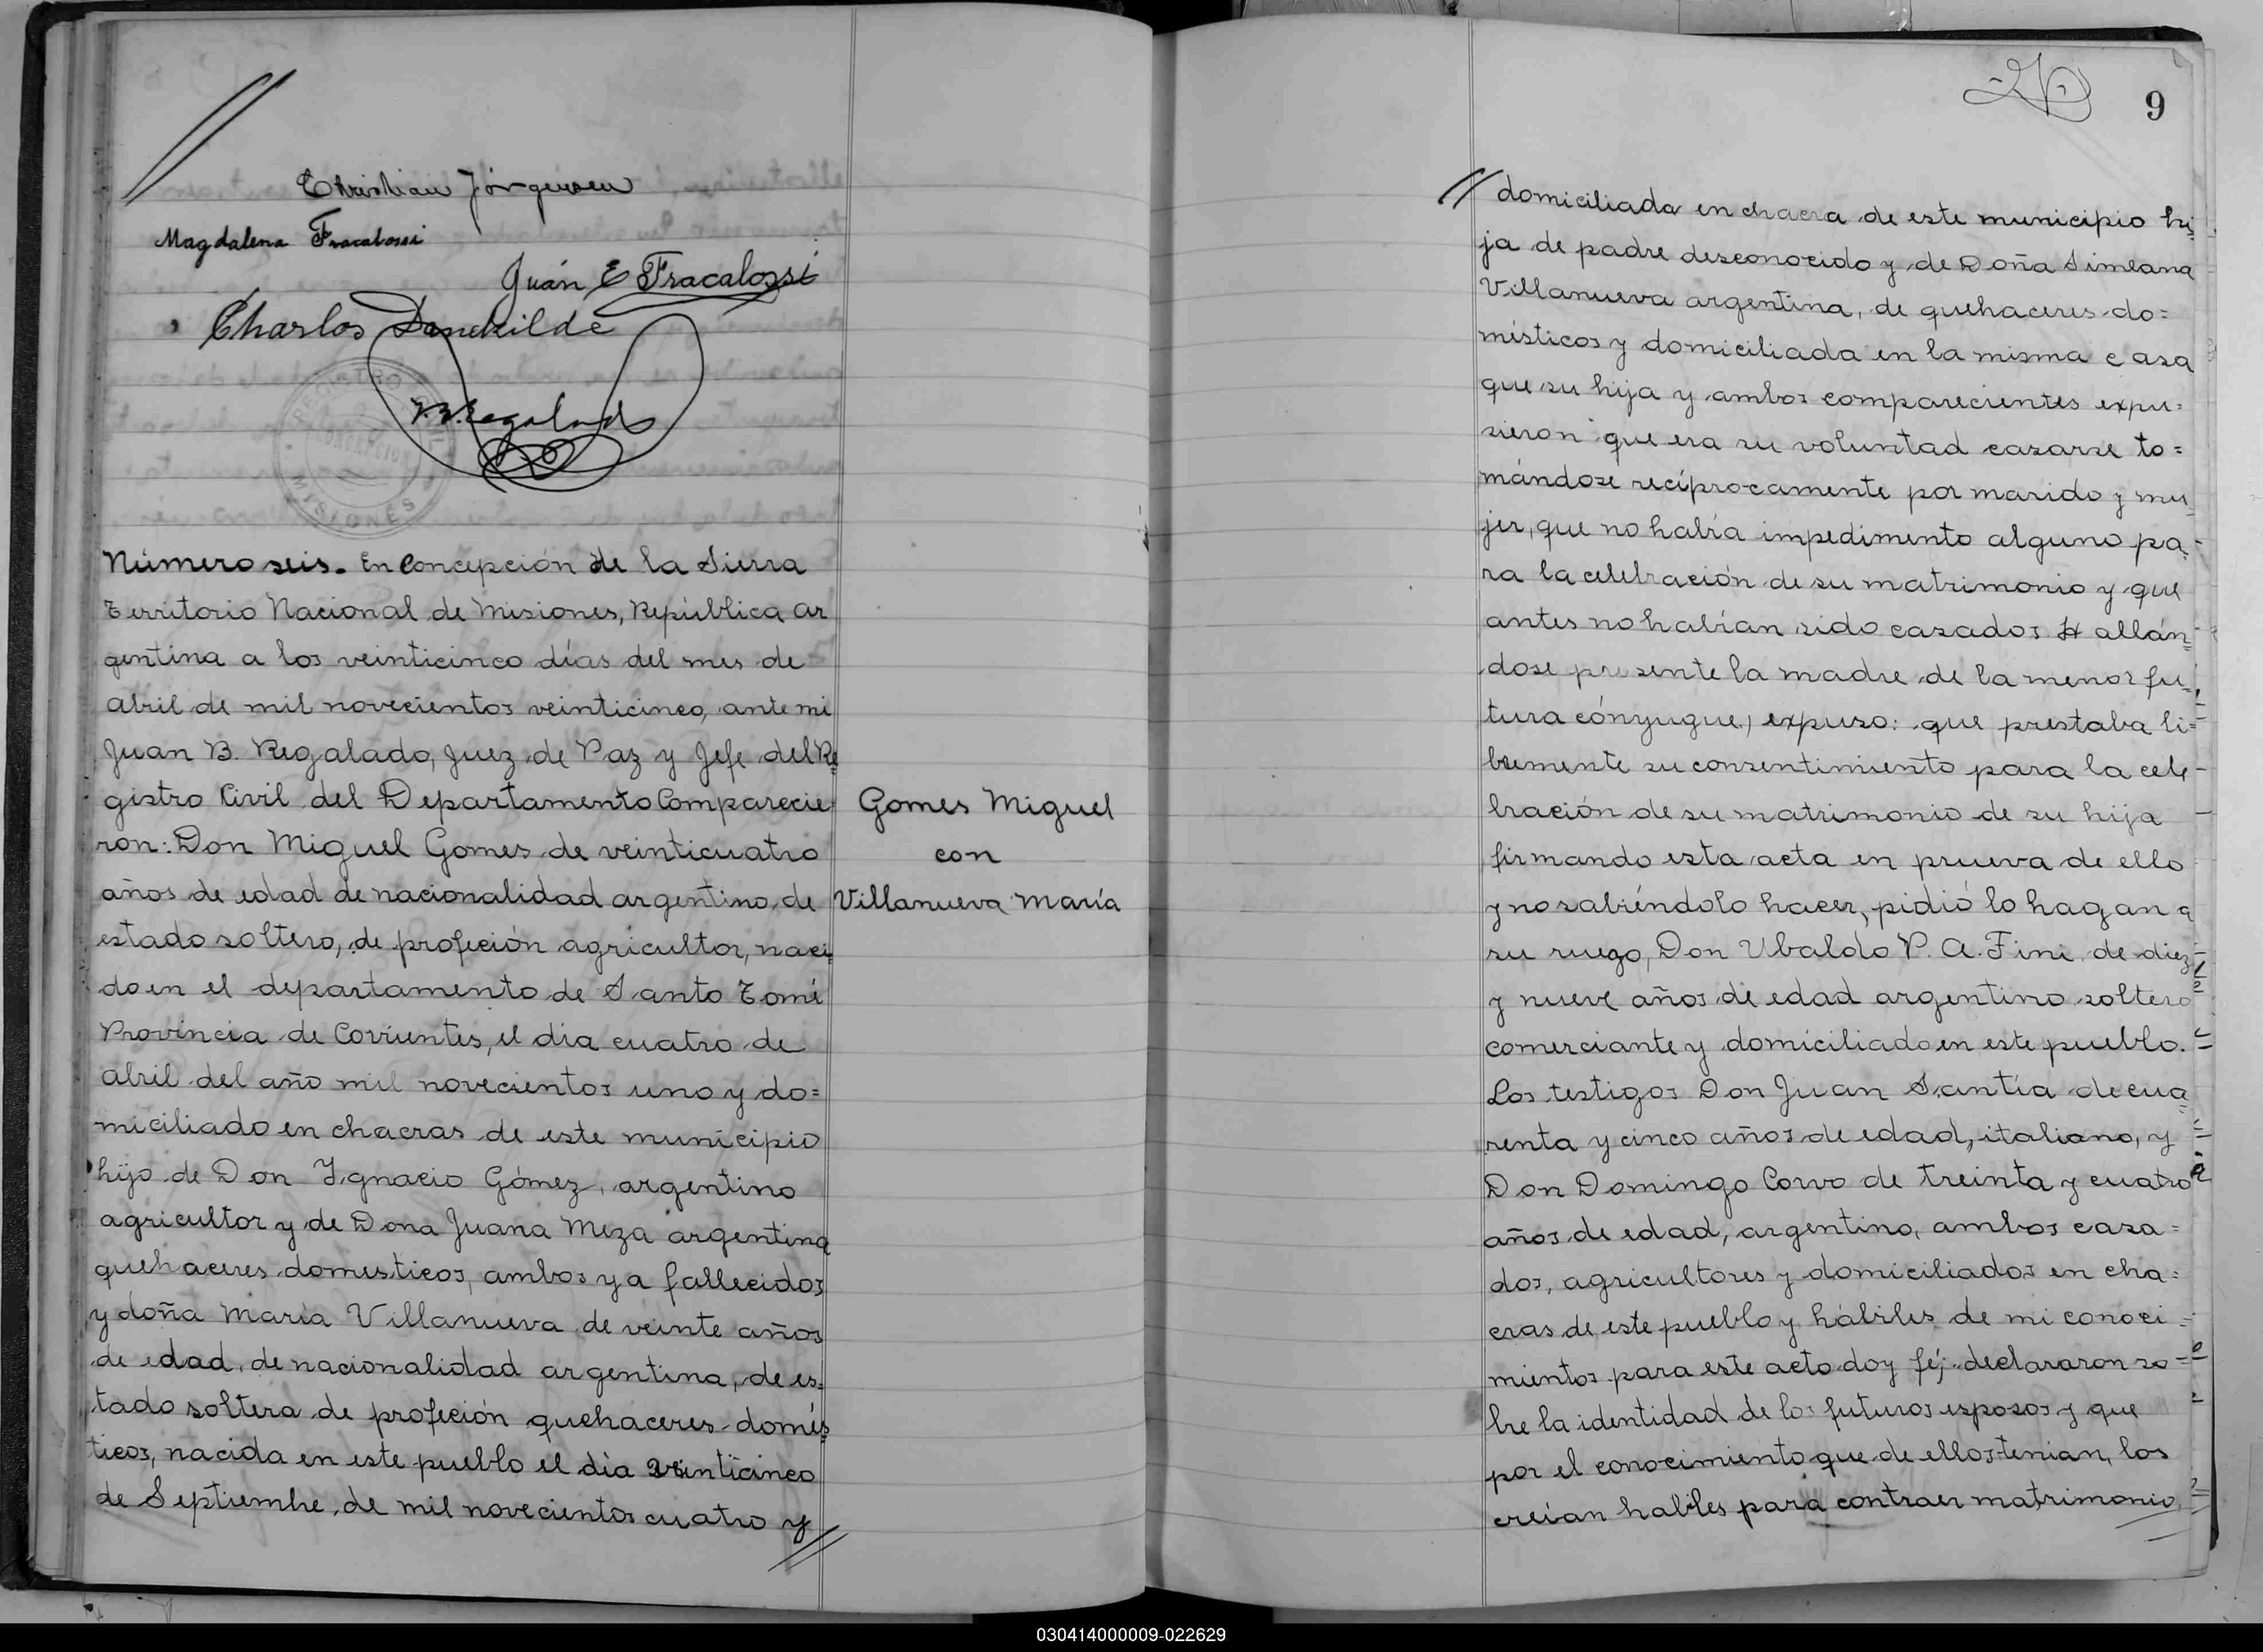 Christian Jörgensen
Magdalena Fracalossi
Juán E Fracalossi
Charlos Danekilde
J.B. Regalado
REGISTRO CIVIL
CONCEPCION
MISIONES
Número seis. En Concepción de la Sierra
Territorio Nacional de Misiones, República Ar
gentina a los veinticinco días del mes de
Abril de mil novecientos veinticinco, ante mi
Juan B. Regalado, Juez de Paz y Jefe del Re
gistro Civil del Departamento Comparecie
ron: Don Miguel Gomes de veinticuatro
años de edad de nacionalidad argentino, de
estado soltero, de profeción agricultor, naci
do en el departamento de Santo Tomé
Provincia de Corrientes, el dia cuatro de
Abril del año mil novecientos uno y do=
miciliado en chacras de este municipio
hijo de Don Ignacio Gómez, argentino
agricultor y de Dona Juana Meza argentina
quehaceres domesticos, ambos ya fallecidos
y doña María Villanueva de veinte años
de edad, de nacionalidad argentina, de es=
tado soltera de profeción quehaceres domés
ticos, nacida en este pueblo el dia veinticinco
de Septiembre, de mil novecientos cuatro y
Gomes Miguel
con
Villanueva María
9
domiciliada en chacra de este municipio hi
ja de padre desconocido y de Doña Simeana
Villanueva argentina, de quehaceres do=
mésticos y domiciliada en la misma casa
que su hija y ambos comparecientes expu=
sieron que era su voluntad casarse to=
mándose recíprocamente por marido y mu
jer, que no había impedimento alguno pa=
ra la celebración de su matrimonio y que
antes no habían sido casados Hallán
dose presente la madre de la menor fu=
tura cónyugue, expuso: que prestaba li=
bremente su consentimiento para la cele
bración de su matrimonio de su hija
firmando esta acta en prueva de ello
y no sabiéndolo hacer, pidió lo hagan a
su ruego, Don Ubaldo P. A. Fini, de diez
y nueve años de edad argentino soltero
comerciante y domiciliado en este pueblo.
Los testigos Don Juan Santía de cua
renta y cinco años de edad, italiano, y
Don Domingo Corvo de treinta y cuatro
años de edad, argentino, ambos casa=
dos, agricultores y domiciliados en cha=
cras de este pueblo y hábiles de mi conoci=
mientos para este acto doy fé; declararon so=
bre la identidad de los futuros esposos y que
por el conocimiento que de ellos tenian, los
creían habiles para contraer matrimonio
030414000009-022629